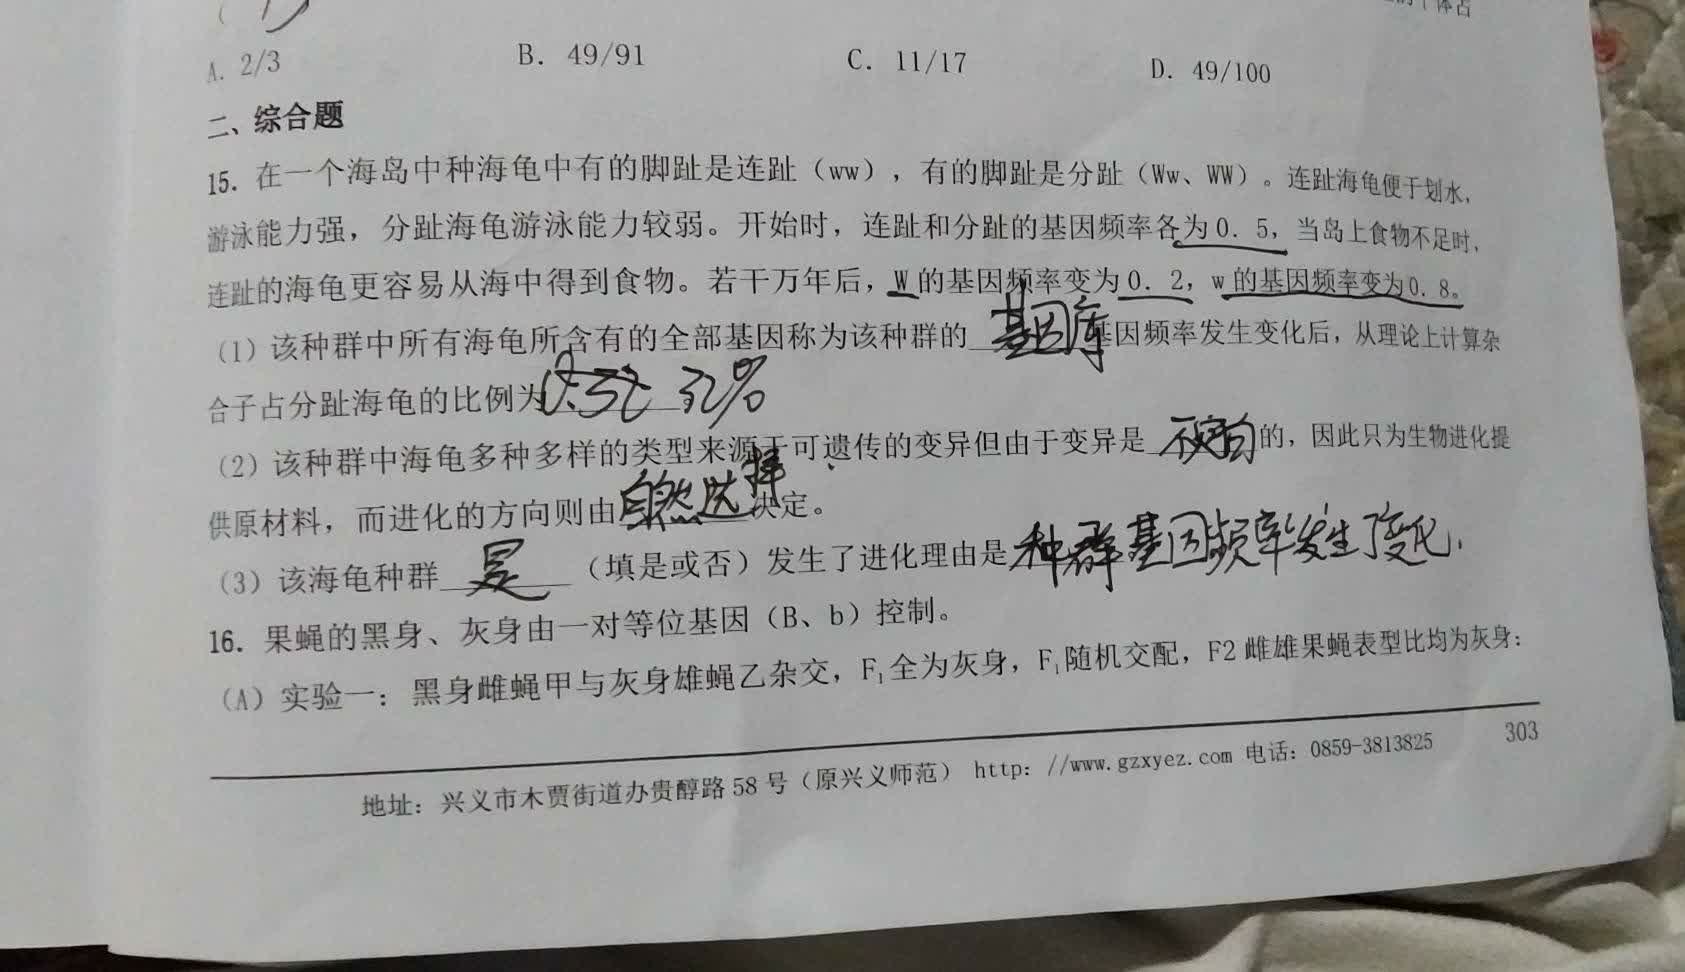 个体占
A. 2/3 B. 49/91 C. 11/17 D. 49/100
二、综合题
15. 在一个海岛中种海龟中有的脚趾是连趾（ww），有的脚趾是分趾（Ww、WW）。连趾海龟便于划水，
游泳能力强，分趾海龟游泳能力较弱。开始时，连趾和分趾的基因频率各为0.5，当岛上食物不足时，
连趾的海龟更容易从海中得到食物。若干万年后，W的基因频率变为0.2，w的基因频率变为0.8。
（1）该种群中所有海龟所含有的全部基因称为该种群的 基因库 基因频率发生变化后，从理论上计算杂
合子占分趾海龟的比例为 32%
（2）该种群中海龟多种多样的类型来源于可遗传的变异但由于变异是 不定向 的，因此只为生物进化提
供原材料，而进化的方向则由 自然选择 决定。
（3）该海龟种群 是 （填是或否）发生了进化理由是 种群基因频率发生了变化.
16. 果蝇的黑身、灰身由一对等位基因（B、b）控制。
（A）实验一：黑身雌蝇甲与灰身雄蝇乙杂交，F₁全为灰身，F₁随机交配，F2雌雄果蝇表型比均为灰身：
地址：兴义市木贾街道办贵醇路58号（原兴义师范） http: //www.gzxyez.com 电话：0859-3813825 303